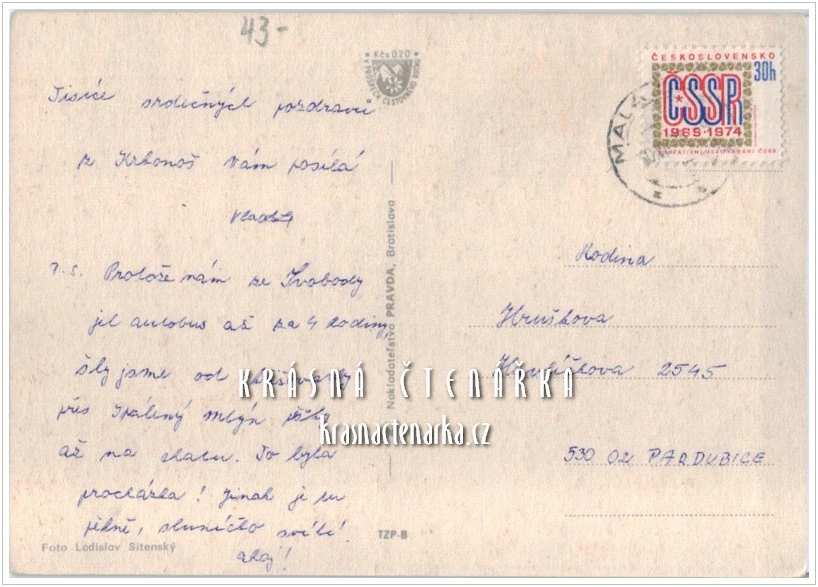 43-
Kčs 0,20
ČESKOSLOVENSKO
30h
ČSSR
1969-1974
MALÁ
Tisíce srdečných pozdravů
z Krkonoš Vám posílá
P.S. Protože nám ze Svobody
jel autobus až za 4 hodiny,
šly jsme od
přes Spálený Mlýn pěšky
až na chatu. To byla
procházka! Jinak je tu
pěkně, sluníčko svítí!
ahoj!
Foto Ladislav Sitenský
Nakladateľstvo PRAVDA, Bratislava
TZP-8
Rodina
Hruškova
Havlíčkova 2545
530 02 PARDUBICE
KRÁSNÁ ČTENÁŘKA
krasnactenarka.cz